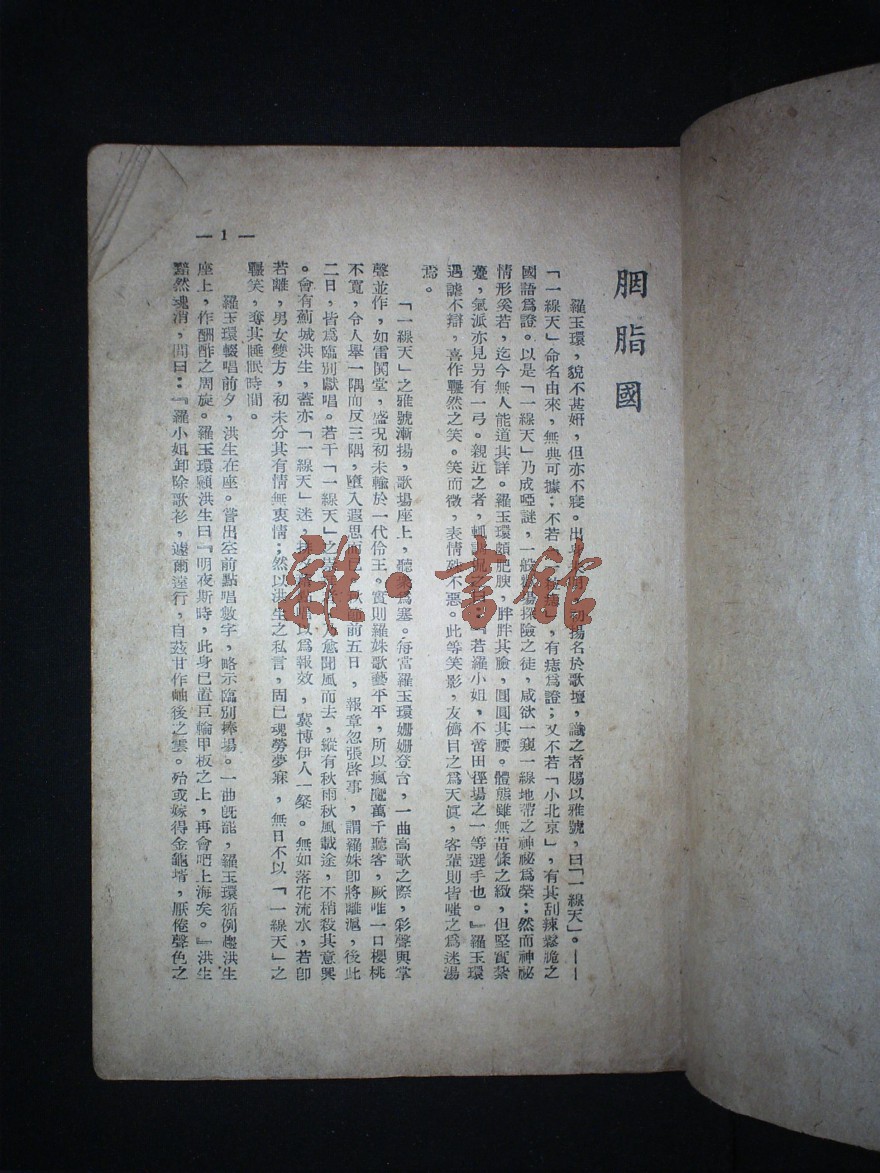 胭脂國
羅玉環，貌不甚妍，但亦不寢。出 初揚名於歌壇，識之者賜以雅號，曰「一線天」。——
「一線天」命名由來，無典可據；不若「 」，有痣爲證；又不若「小北京」，有其刮辣鬆脆之
國語爲證。以是「一線天」乃成啞謎，一般 探險之徒，咸欲一窺一線地帶之神祕爲榮；然而神祕
情形奚若，迄今無人能道其詳。羅玉環頗肥腴，胖胖其臉，圓圓其腰。體態雖無苗條之緻，但堅實紮
躉，氣派亦見另有一弓。親近之者， 「若羅小姐，不啻田徑場之一等選手也。』羅玉環
遇謔不辯，喜作囅然之笑。笑而微，表情殊不惡。此等笑影，友儕目之爲天眞，客輩則皆嗤之爲迷湯
焉。
「一線天」之雅號漸揚，歌場座上，聽衆爲塞。每當羅玉環姍姍登台，一曲高歌之際，彩聲與掌
聲並作，如雷鬨堂，盛况初未輸於一代伶王。實則羅姝歌藝平平，所以瘋魔萬千聽客，厥唯一口櫻桃
不寬，令人舉一隅而反三隅，墮入遐思而已。 前五日，報章忽張啓事，謂羅姝卽將離滬，後此
二日，皆爲臨別獻唱。若干「一線天」之 愈聞風而去，縱有秋雨秋風載途，不稍殺其意興
。會有薊城洪生，蓋亦「一線天」迷， 以爲報效，冀博伊人一粲。無如落花流水，若卽
若離，男女雙方，初未分其有情無衷情；然以洪生之私言，固已魂勞夢寐，無日不以「一線天」之
囅笑，奪其睡眠時間。
羅玉環輟唱前夕，洪生在座。嘗出至前點唱數字，略示臨別捧場。一曲旣罷，羅玉環循例趨洪生
座上，作酬酢之周旋。羅玉環顧洪生曰『明夜斯時，此身已置巨輪甲板之上，再會吧上海矣。』洪生
黯然魂消，問曰：『羅小姐卸除歌衫，遽爾遠行，自茲甘作岫後之雲。殆或嫁得金龜壻，厭倦聲色之
— 1 —
雜·書館